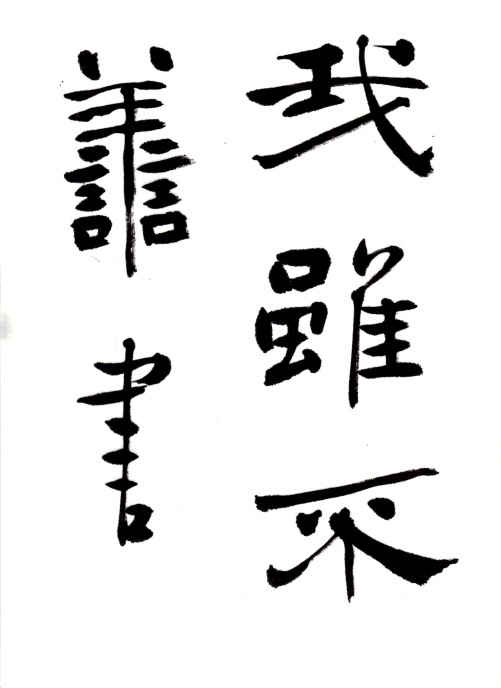 我雖不
譱書